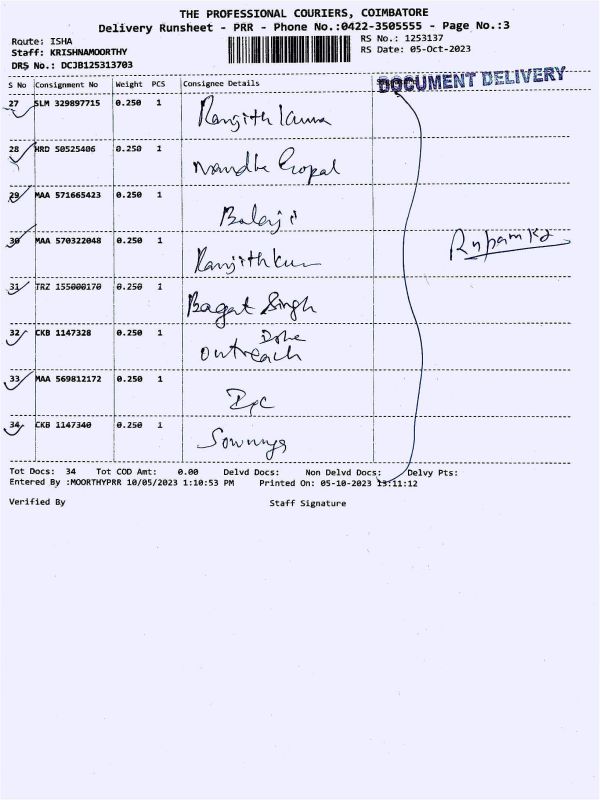 THE PROFESSIONAL COURIERS, COIMBATORE
Delivery Runsheet - PRR - Phone No.:0422-3505555 - Page No.:3
Route: ISHA
Staff: KRISHNAMOORTHY
DRS No.: DCJB125313703
RS No.: 1253137
RS Date: 05-Oct-2023
S No Consignment No Weight PCS Consignee Details
DOCUMENT DELIVERY
27 SLM 329897715 0.250 1 Ranjith Kumar
28 HRD 50525406 0.250 1 Nandha Gopal
29 MAA 571665423 0.250 1 Balaji
30 MAA 570322048 0.250 1 Ranjithkum
31 TRZ 155000170 0.250 1 Bagat Singh
32 CKB 1147328 0.250 1 outreach
33 MAA 569812172 0.250 1
34 CKB 1147340 0.250 1 Sowmya
Tot Docs: 34 Tot COD Amt: 0.00 Delvd Docs: Non Delvd Docs: Delvy Pts:
Entered By :MOORTHYPRR 10/05/2023 1:10:53 PM Printed On: 05-10-2023 13:11:12
Verified By Staff Signature